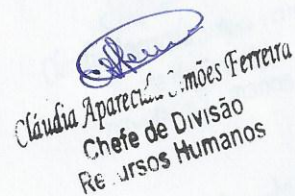 Cláudia Aparecida Simões Ferreira
Chefe de Divisão
Recursos Humanos